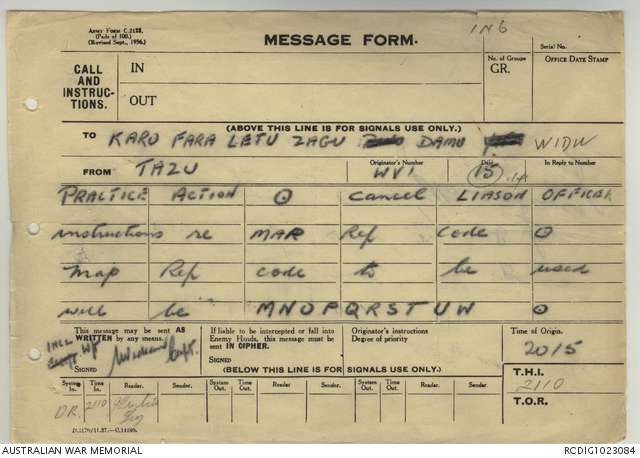 Army Form C.2128.
(Pads of 100.)
(Revised Sept., 1936.)
MESSAGE FORM.
1 N 6
Serial No.
CALL
AND
INSTRUC-
TIONS.
IN
OUT
No. of Groups
GR.
OFFICE DATE STAMP
(ABOVE THIS LINE IS FOR SIGNALS USE ONLY.)
TO KARO FARA LETU ZAGU DAMU WIDW
FROM TAZU
Originator's Number WV1
Date 15
In Reply to Number
PRACTICE ACTION ⊙ Cancel LIASON OFFICER
instructions re MAR Ref Code ⊙
Map Ref code to be used
will be MNOPQRSTUW ⊙
This message may be sent AS
WRITTEN by any means.
SIGNED Capt.
If liable to be intercepted or fall into
Enemy Hands, this message must be
sent IN CIPHER.
SIGNED
Originator's instructions
Degree of priority
Time of Origin.
2015
(BELOW THIS LINE IS FOR SIGNALS USE ONLY.)
T.H.I.
2110
T.O.R.
System In. Time In. Reader. Sender. System Out. Time Out. Reader. Sender. System Out. Time Out. Reader. Sender.
DR. 2110
AUSTRALIAN WAR MEMORIAL
RCDIG1023084